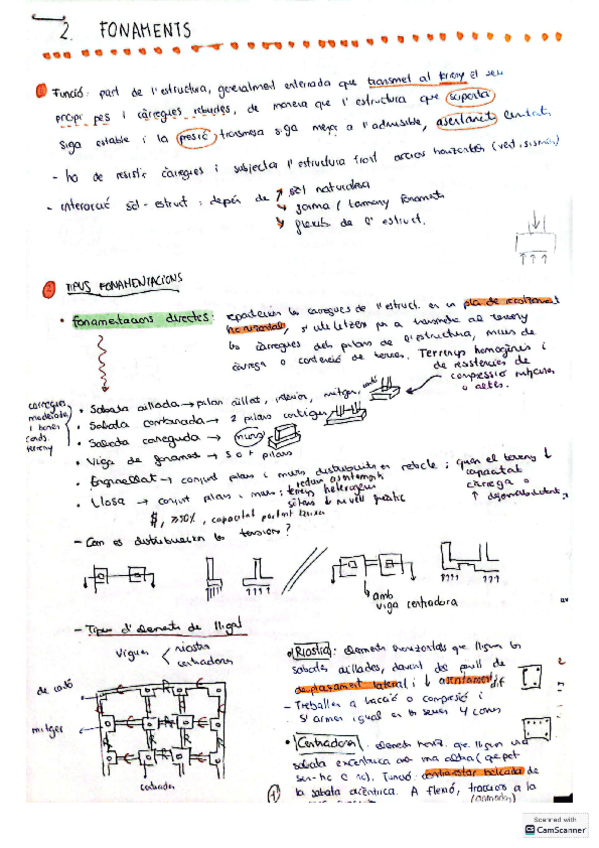 2. FONAMENTS
1 Funció: part de l'estructura, generalment enterrada que transmet al terreny el seu
propi pes i càrregues rebudes, de manera que l'estructura que suporta
siga estable i la pressió transmesa siga menor a l'admissible,
- ha de resistir càrregues i subjectar l'estructura front accions horitzontals (vent, sismes)
- interacció sòl-estruct: depén de sòl naturalesa
forma / tamany fonaments
flexib. de l'estruct.
2 TIPUS FONAMENTACIONS
• fonamentacions directes: reparteixen les càrregues de l'estruct. en un pla de
horitzontal, s'utilitzen per a transmetre al terreny
les càrregues dels pilars de l'estructura, murs de
càrrega o contenció de terres. Terrenys homogenis i
de resistències de
compressió mitjanes
o altes.
càrregues
moderades
i bones
conds.
terreny
• Sabata aïllada → pilar aïllat, interior, mitger,
• Sabata combinada → 2 pilars contigus
• Sabata correguda → murs
• Viga de fonaments → 3 o + pilars
• Engraellat → conjunt pilars i murs distribuïts en retícle; quan el terreny ↓
capacitat
càrrega o
↑
• Llosa → conjunt pilars i murs; terreny heterogeni
reduir assentaments
$, >50%, capacitat portant baixa
- Com es distribueixen les tensions?
amb
viga centradora
- Tipus d'elements de lligat
vigues riostra
centradores
mitger
centrador
• Riostra: elements horitzontals que lliguen les
sabates aïllades, davant de perill de
desplaçament lateral i ↓ assentament dif
- Treballen a tracció o compressió i
s'armen igual en les seues 4 cares
• Centradora: elements horitz. que lliguen una
sabata excèntrica amb una altra (que pot
Funció: contrarestar bolcada de
la sabata excèntrica. A flexió, traccions a la
1
Scanned with
CamScanner